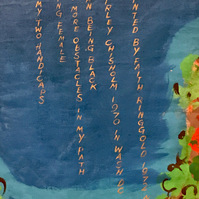 MY TWO HANDICAPS
NG FEMALE
MORE OBSTACLES IN MY PATH
N BEING BLACK
RLEY CHISHOLM 1970 IN WASH DC
NTED BY FAITH RINGGOLD